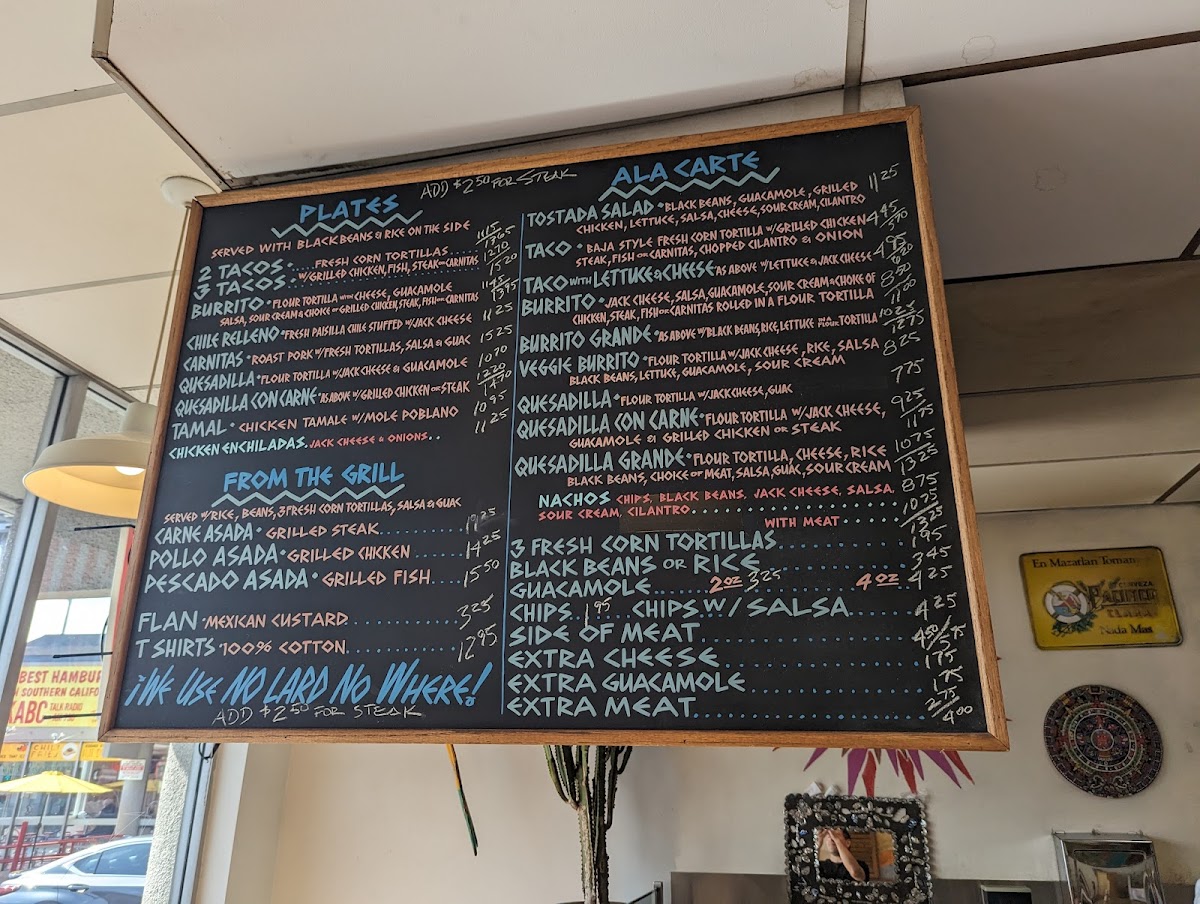 ADD $2.50 FOR STEAK
PLATES
SERVED WITH BLACK BEANS & RICE ON THE SIDE
2 TACOS. FRESH CORN TORTILLAS
3 TACOS. W/GRILLED CHICKEN, FISH, STEAK OR CARNITAS 1520
BURRITO • FLOUR TORTILLA WITH CHEESE, GUACAMOLE
SALSA, SOUR CREAM & CHOICE OF GRILLED CHICKEN, STEAK, FISH OR CARNITAS 1395
CHILE RELLENO • FRESH PAISILLA CHILE STUFFED W/JACK CHEESE 1125
CARNITAS • ROAST PORK W/FRESH TORTILLAS, SALSA & GUAC 1525
QUESADILLA • FLOUR TORTILLA W/JACK CHEESE & GUACAMOLE 1070
QUESADILLA CON CARNE • AS ABOVE W/GRILLED CHICKEN OR STEAK
TAMAL • CHICKEN TAMALE W/MOLE POBLANO 1095
CHICKEN ENCHILADAS. JACK CHEESE & ONIONS.. 1125
FROM THE GRILL
SERVED W/RICE, BEANS, 3 FRESH CORN TORTILLAS, SALSA & GUAC
CARNE ASADA • GRILLED STEAK
POLLO ASADA • GRILLED CHICKEN 1425
PESCADO ASADA • GRILLED FISH 1550
FLAN • MEXICAN CUSTARD 325
T SHIRTS • 100% COTTON 1295
¡WE USE NO LARD NO WHERE!
ADD $2.50 FOR STEAK
ALA CARTE
TOSTADA SALAD • BLACK BEANS, GUACAMOLE, GRILLED 1125
CHICKEN, LETTUCE, SALSA, CHEESE, SOUR CREAM, CILANTRO
TACO • BAJA STYLE FRESH CORN TORTILLA W/GRILLED CHICKEN 445
STEAK, FISH OR CARNITAS, CHOPPED CILANTRO & ONION 570
TACO WITH LETTUCE & CHEESE AS ABOVE W/LETTUCE & JACK CHEESE 495
BURRITO • JACK CHEESE, SALSA, GUACAMOLE, SOUR CREAM & CHOICE OF 850
CHICKEN, STEAK, FISH OR CARNITAS ROLLED IN A FLOUR TORTILLA 1100
BURRITO GRANDE • AS ABOVE W/BLACK BEANS, RICE, LETTUCE IN A FLOUR TORTILLA 1025
1275
VEGGIE BURRITO • FLOUR TORTILLA W/JACK CHEESE, RICE, SALSA 825
BLACK BEANS, LETTUCE, GUACAMOLE, SOUR CREAM
QUESADILLA • FLOUR TORTILLA W/JACK CHEESE, GUAC 775
QUESADILLA CON CARNE • FLOUR TORTILLA W/JACK CHEESE, 925
GUACAMOLE & GRILLED CHICKEN OR STEAK 1175
QUESADILLA GRANDE • FLOUR TORTILLA, CHEESE, RICE 1075
BLACK BEANS, CHOICE OF MEAT, SALSA, GUAC, SOUR CREAM 1325
NACHOS CHIPS, BLACK BEANS, JACK CHEESE, SALSA, 875
SOUR CREAM, CILANTRO
WITH MEAT 1075
1325
3 FRESH CORN TORTILLAS 195
BLACK BEANS OR RICE 345
GUACAMOLE 2 OZ 325 4 OZ 425
CHIPS 195 CHIPS W/SALSA 425
SIDE OF MEAT 450/575
EXTRA CHEESE 175
EXTRA GUACAMOLE 175
EXTRA MEAT 275/400
En Mazatlan Toman
CERVEZA
PACIFICO
CLARA
Nada Mas
BEST HAMBUR
SOUTHERN CALIFO
KABC TALK RADIO